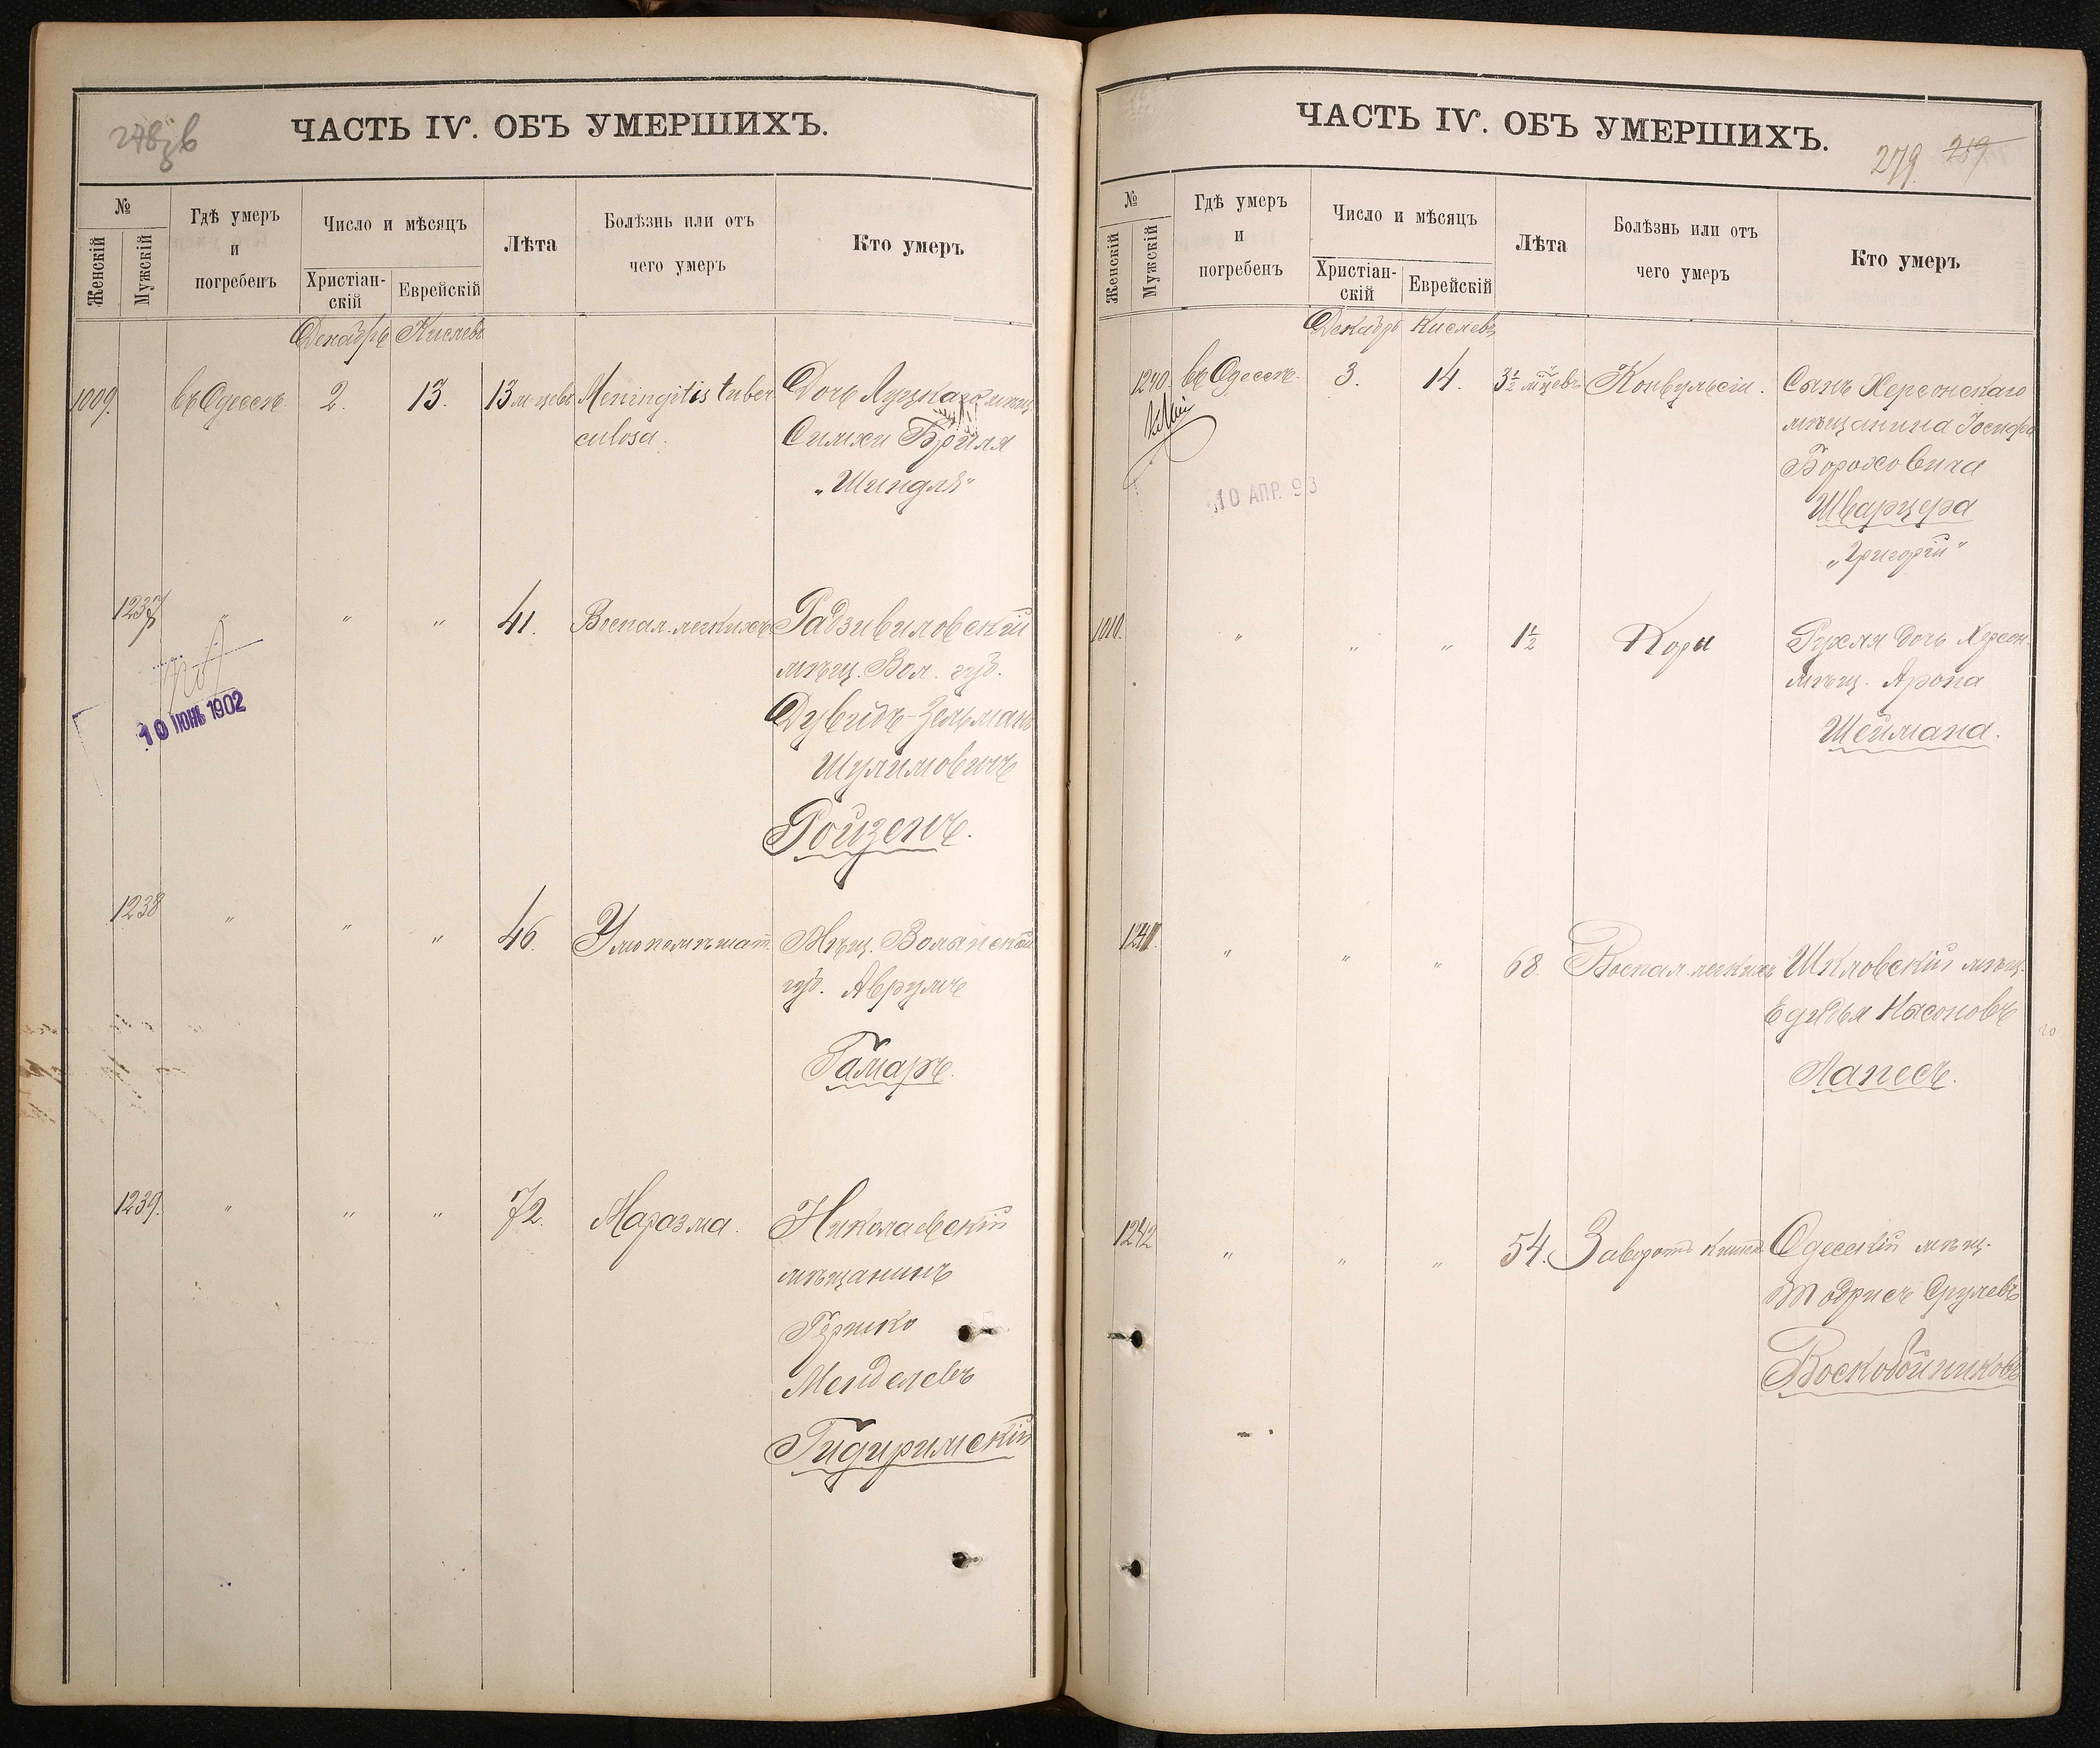 278 об
ЧАСТЬ IV. ОБЪ УМЕРШИХЪ.
№
Женскій
Мужскій
Гдѣ умеръ
и
погребенъ
Число и мѣсяцъ
Христіан-
скій
Еврейскій
Лѣта
Болѣзнь или отъ
чего умеръ
Кто умеръ
Декабрь Кислевъ
1009. въ Одессѣ 2. 13. 13 м-цевъ Meningitis tuber Дочь Луцкаго мѣщ.
culosa. Симхи Бриля
„Шиндля"
1237 " " " 41. Воспал. легкихъ Радзивиловскій
мѣщ. Вол. губ.
Дувидъ-Зельманъ
Шулимовичъ
Ройзенъ.
10 ІЮНЬ 1902
1238 " " " 46. Умопомѣшат. Мѣщ. Волынской
губ. Аврумъ
Гамаръ.
1239. " " " 72. Маразма. Николаевскій
мѣщанинъ
Гершко
Менделевъ
Гидиримскій
ЧАСТЬ IV. ОБЪ УМЕРШИХЪ.
279. 219
№
Женскій
Мужскій
Гдѣ умеръ
и
погребенъ
Число и мѣсяцъ
Христіан-
скій
Еврейскій
Лѣта
Болѣзнь или отъ
чего умеръ
Кто умеръ
Декабрь Кислевъ
1240. въ Одессѣ. 3. 14. 3½ м-цевъ Конвульсіи. Сынъ Херсонскаго
мѣщанина Іосифа
Бороховича
Шварцера
„Григорій"
10 АПР. 93
1010. " " " 1½ Корь Рухля дочь Херсон.
мѣщ. Арона
Шеймана.
1241. " " " 68. Воспал. легкихъ Шкловскій мѣщ.
Едидья Насоновъ
Лапесъ.
1242 " " " 54. Заворотъ кишекъ Одесскій мѣщ.
Тодрисъ Срулевъ
Воскобойниковъ